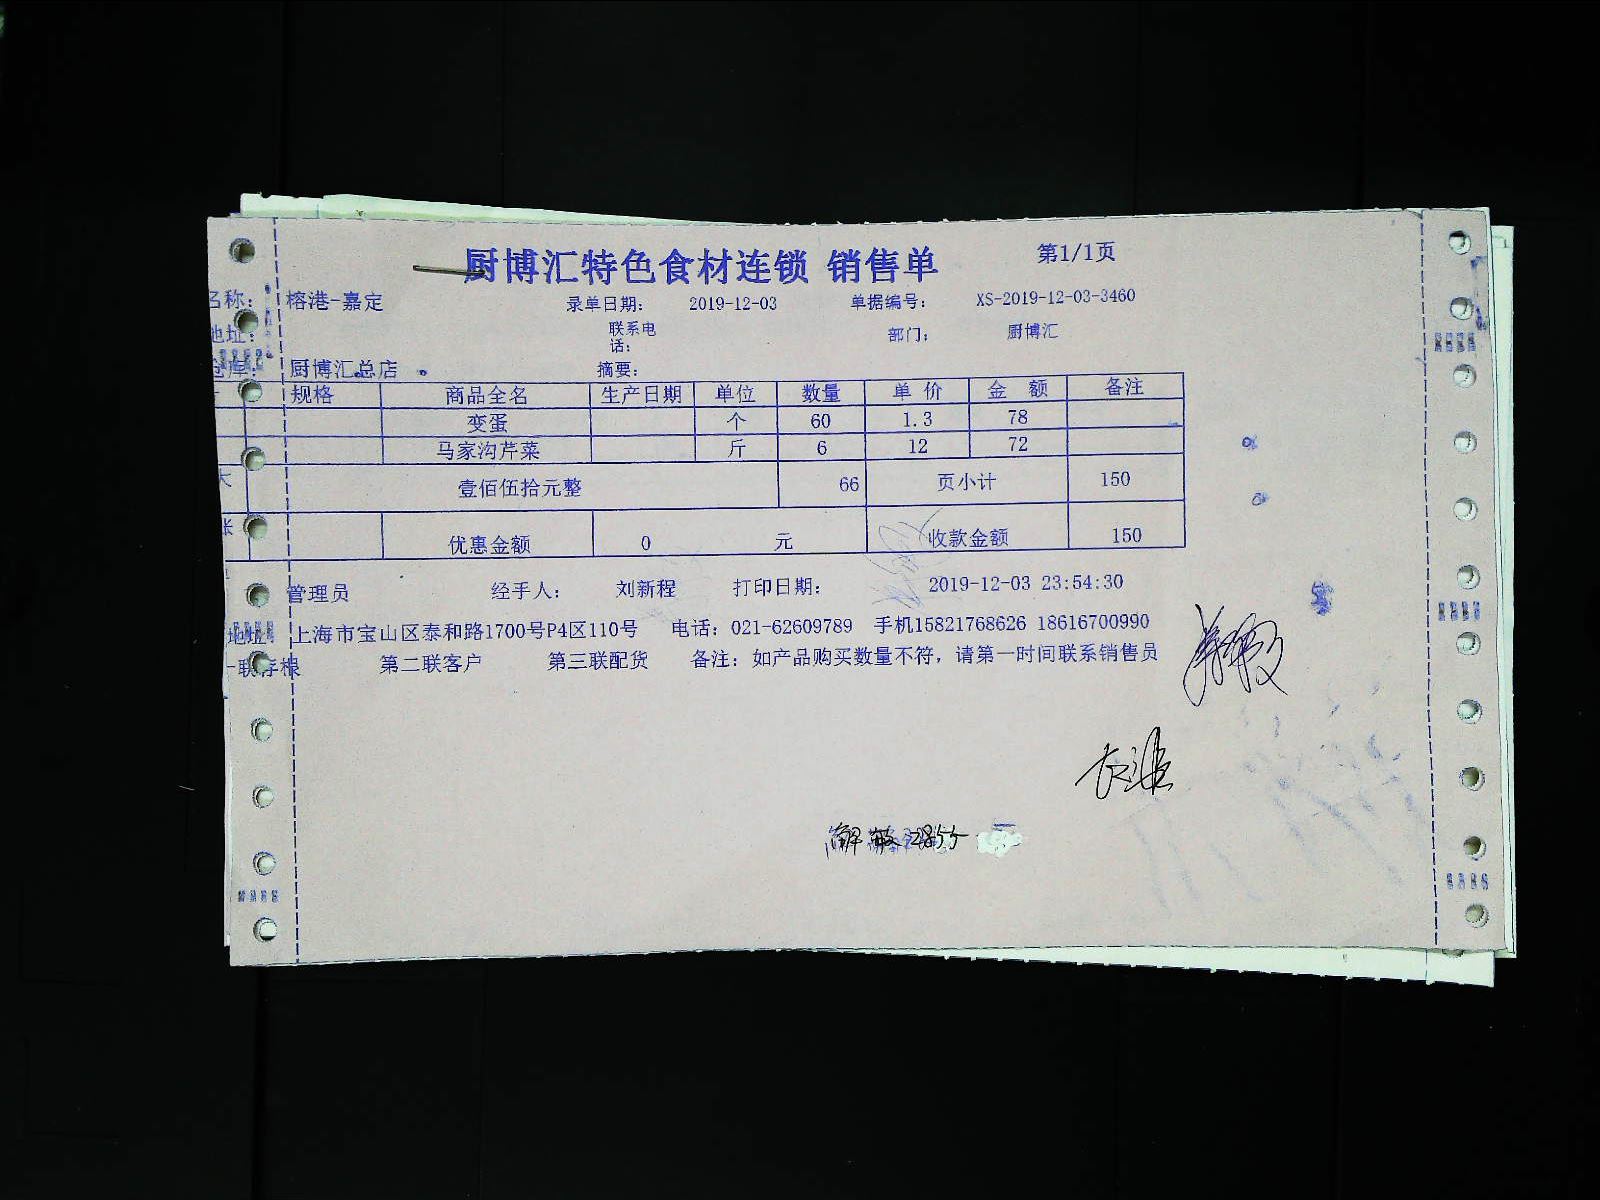 厨博汇特色食材连锁 销售单 第1/1页
名称: 榕港-嘉定 录单日期: 2019-12-03 单据编号: XS-2019-12-03-3460
地址: 联系电话: 部门: 厨博汇
仓库: 厨博汇总店 摘要:
规格 商品全名 生产日期 单位 数量 单价 金额 备注
变蛋 个 60 1.3 78
马家沟芹菜 斤 6 12 72
大 壹佰伍拾元整 66 页小计 150
账 优惠金额 0 元 收款金额 150
管理员 经手人: 刘新程 打印日期: 2019-12-03 23:54:30
地址 上海市宝山区泰和路1700号P4区110号 电话: 021-62609789 手机15821768626 18616700990
一联存根 第二联客户 第三联配货 备注: 如产品购买数量不符,请第一时间联系销售员